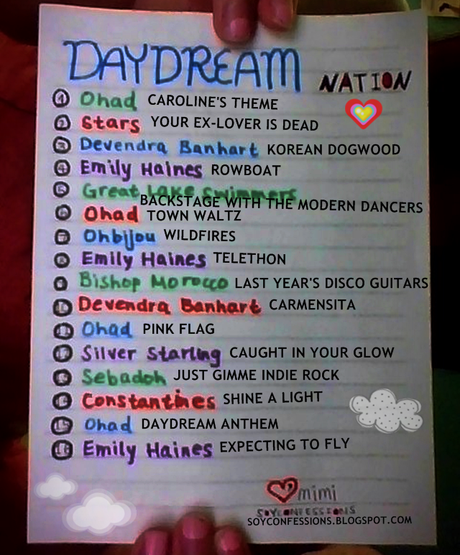 DAYDREAM NATION
1 Ohad CAROLINE'S THEME
2 Stars YOUR EX-LOVER IS DEAD
3 Devendra Banhart KOREAN DOGWOOD
4 Emily Haines ROWBOAT
5 Great Lake Swimmers BACKSTAGE WITH THE MODERN DANCERS
6 Ohad TOWN WALTZ
7 Ohbijou WILDFIRES
8 Emily Haines TELETHON
9 Bishop Morocco LAST YEAR'S DISCO GUITARS
10 Devendra Banhart CARMENSITA
11 Ohad PINK FLAG
12 Silver Starling CAUGHT IN YOUR GLOW
13 Sebadoh JUST GIMME INDIE ROCK
14 Constantines SHINE A LIGHT
15 Ohad DAYDREAM ANTHEM
16 Emily Haines EXPECTING TO FLY
mimi
SOYCONFESSIONS
SOYCONFESSIONS.BLOGSPOT.COM